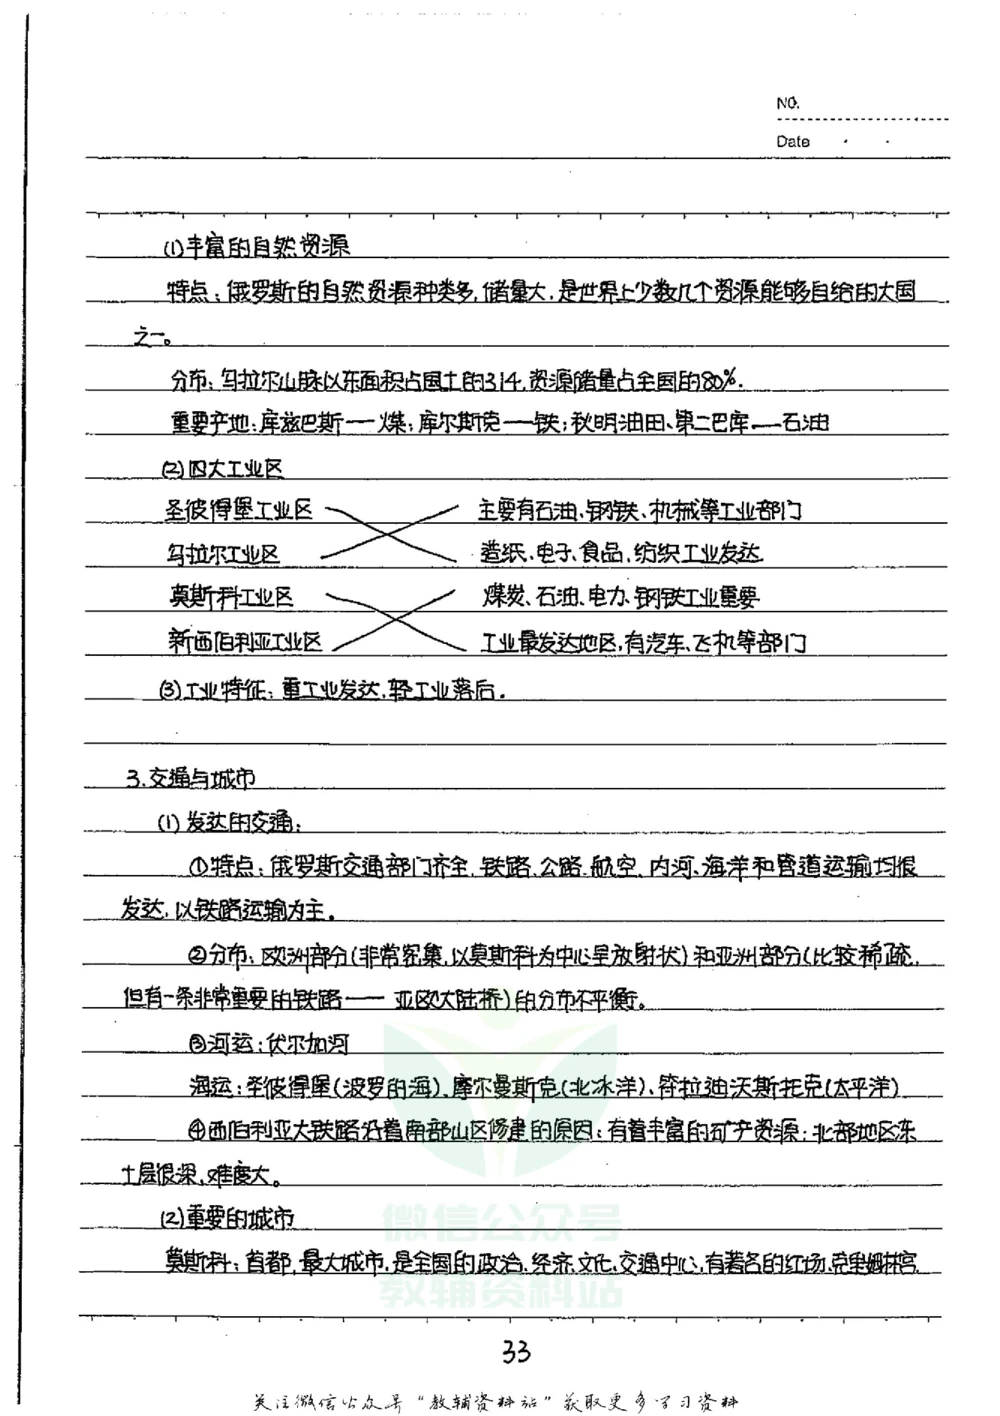 NO.
Date
(1)丰富的自然资源
特点:俄罗斯的自然资源种类多,储量大,是世界上少数几个资源能够自给的大国
之一。
分布:乌拉尔山脉以东面积占国土的3/4,资源储量占全国的80%.
重要产地:库兹巴斯——煤;库尔斯克——铁;秋明油田、第二巴库——石油
(2)四大工业区
圣彼得堡工业区 主要有石油、钢铁、机械等工业部门
乌拉尔工业区 造纸、电子、食品,纺织工业发达
莫斯科工业区 煤炭、石油、电力、钢铁工业重要
新西伯利亚工业区 工业最发达地区,有汽车、飞机等部门
(3)工业特征:重工业发达,轻工业落后.
3.交通与城市
(1)发达的交通:
①特点:俄罗斯交通部门齐全,铁路、公路、航空、内河、海洋和管道运输均很
发达,以铁路运输为主。
②分布:欧洲部分(非常密集,以莫斯科为中心呈放射状)和亚洲部分(比较稀疏,
但有一条非常重要的铁路——亚欧大陆桥)的分布不平衡。
③河运:伏尔加河
海运:圣彼得堡(波罗的海)、摩尔曼斯克(北冰洋)、符拉迪沃斯托克(太平洋)
④西伯利亚大铁路沿着南部山区修建的原因:有着丰富的矿产资源;北部地区冻
土层很深,难度大。
(2)重要的城市
莫斯科:首都,最大城市,是全国的政治、经济、文化、交通中心,有著名的红场、克里姆林宫
微信公众号
教辅资料站
33
关注微信公众号“教辅资料站”获取更多学习资料